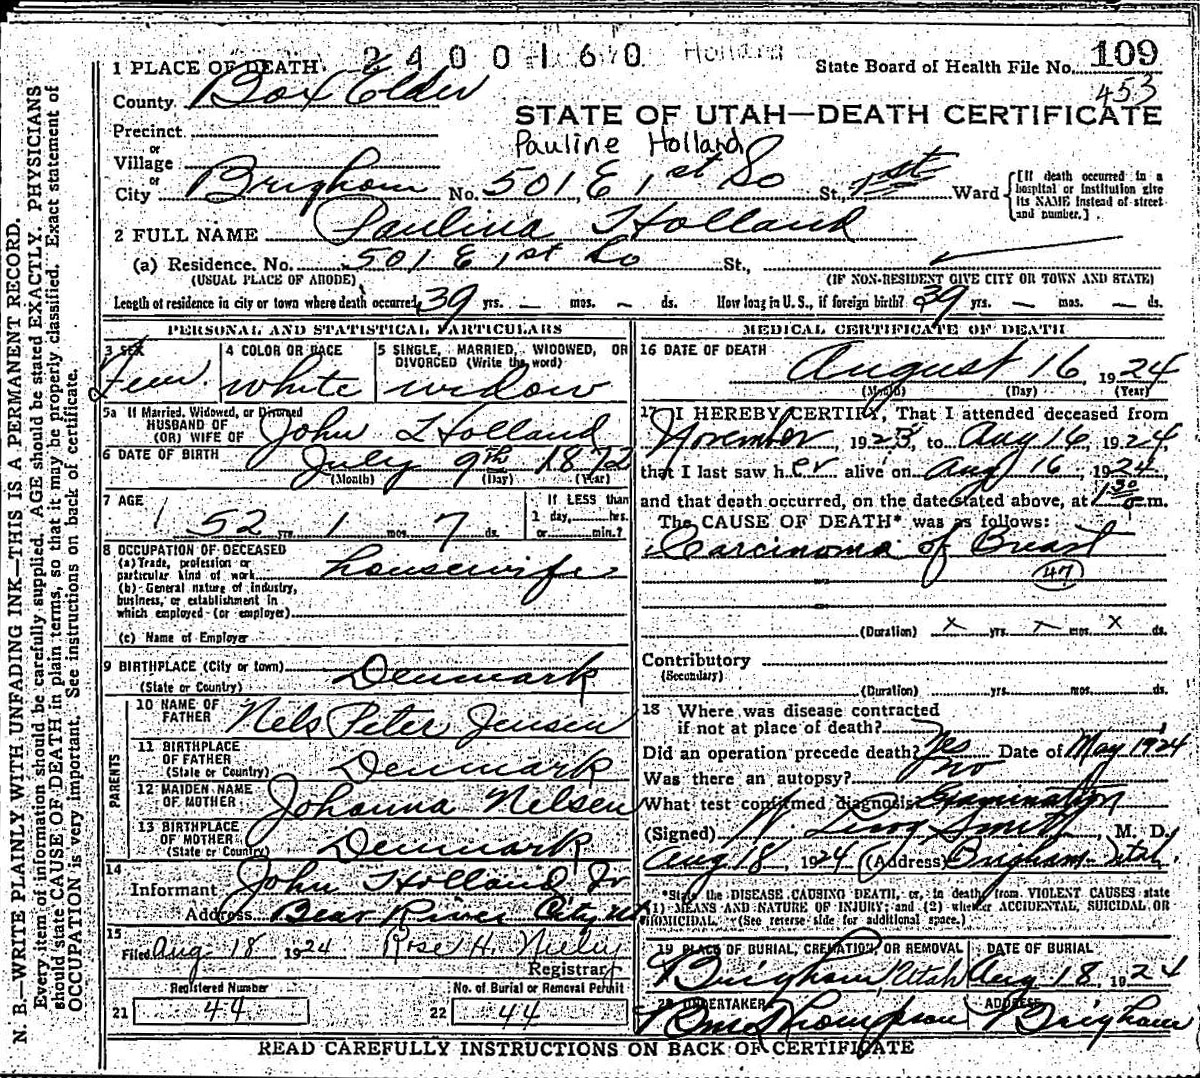 2400160 Holland
1 PLACE OF DEATH.
State Board of Health File No. 109
County Box Elder
453
STATE OF UTAH—DEATH CERTIFICATE
Precinct
or
Pauline Holland
Village
or
City Brigham No. 501 E 1st So St., 1st Ward
[If death occurred in a hospital or institution give its NAME instead of street and number.]
2 FULL NAME Paulina Holland
(a) Residence. No. 501 E 1st So St.,
(USUAL PLACE OF ABODE) (IF NON-RESIDENT GIVE CITY OR TOWN AND STATE)
Length of residence in city or town where death occurred 39 yrs. — mos. — ds. How long in U.S., if foreign birth? 39 yrs. — mos. — ds.
PERSONAL AND STATISTICAL PARTICULARS
3 SEX 4 COLOR OR RACE 5 SINGLE, MARRIED, WIDOWED, OR
DIVORCED (Write the word)
Fem. White widow
5a If Married, Widowed, or Divorced
HUSBAND OF
(OR) WIFE OF John L Holland
6 DATE OF BIRTH July 9th 1872
(Month) (Day) (Year)
7 AGE If LESS than
1 day, hrs.
52 yrs. 1 mos. 7 ds. or min.?
8 OCCUPATION OF DECEASED
(a) Trade, profession or
particular kind of work housewife
(b) General nature of industry,
business, or establishment in
which employed (or employer)
(c) Name of Employer
9 BIRTHPLACE (City or town) Denmark
(State or Country)
PARENTS
10 NAME OF
FATHER Nels Peter Jensen
11 BIRTHPLACE
OF FATHER
(State or Country) Denmark
12 MAIDEN NAME
OF MOTHER Johanna Nelsen
13 BIRTHPLACE
OF MOTHER
(State or Country) Denmark
14
Informant John Holland Jr
Address Bear River City Ut
15
Filed Aug 18 1924 Rose H. Registrar
Registered Number No. of Burial or Removal Permit
21 44 22 44
MEDICAL CERTIFICATE OF DEATH
16 DATE OF DEATH
August 16 1924
(Month) (Day) (Year)
17 I HEREBY CERTIFY, That I attended deceased from
November 1923, to Aug 16 1924,
that I last saw her alive on Aug 16, 1924,
and that death occurred, on the date stated above, at 1 30 m.
The CAUSE OF DEATH* was as follows:
Carcinoma of Breast
47
(Duration) x yrs. x mos. x ds.
Contributory
(Secondary)
(Duration) yrs. mos. ds.
18 Where was disease contracted
if not at place of death?
Did an operation precede death? Yes Date of May 1924
Was there an autopsy? no
What test confirmed diagnosis Examination
(Signed) W Leroy Smith, M. D.
Aug 18, 1924 (Address) Brigham Utah.
*State the DISEASE CAUSING DEATH, or, in death from VIOLENT CAUSES state
(1) MEANS AND NATURE OF INJURY; and (2) whether ACCIDENTAL, SUICIDAL OR
HOMICIDAL. (See reverse side for additional space.)
19 PLACE OF BURIAL, CREMATION, OR REMOVAL DATE OF BURIAL
Brigham, Utah Aug 18 1924
20 UNDERTAKER ADDRESS
Thompson Brigham
READ CAREFULLY INSTRUCTIONS ON BACK OF CERTIFICATE
N. B.—WRITE PLAINLY WITH UNFADING INK—THIS IS A PERMANENT RECORD.
Every item of information should be carefully supplied. AGE should be stated EXACTLY. PHYSICIANS
should state CAUSE OF DEATH in plain terms, so that it may be properly classified. Exact statement of
OCCUPATION is very important. See instructions on back of certificate.